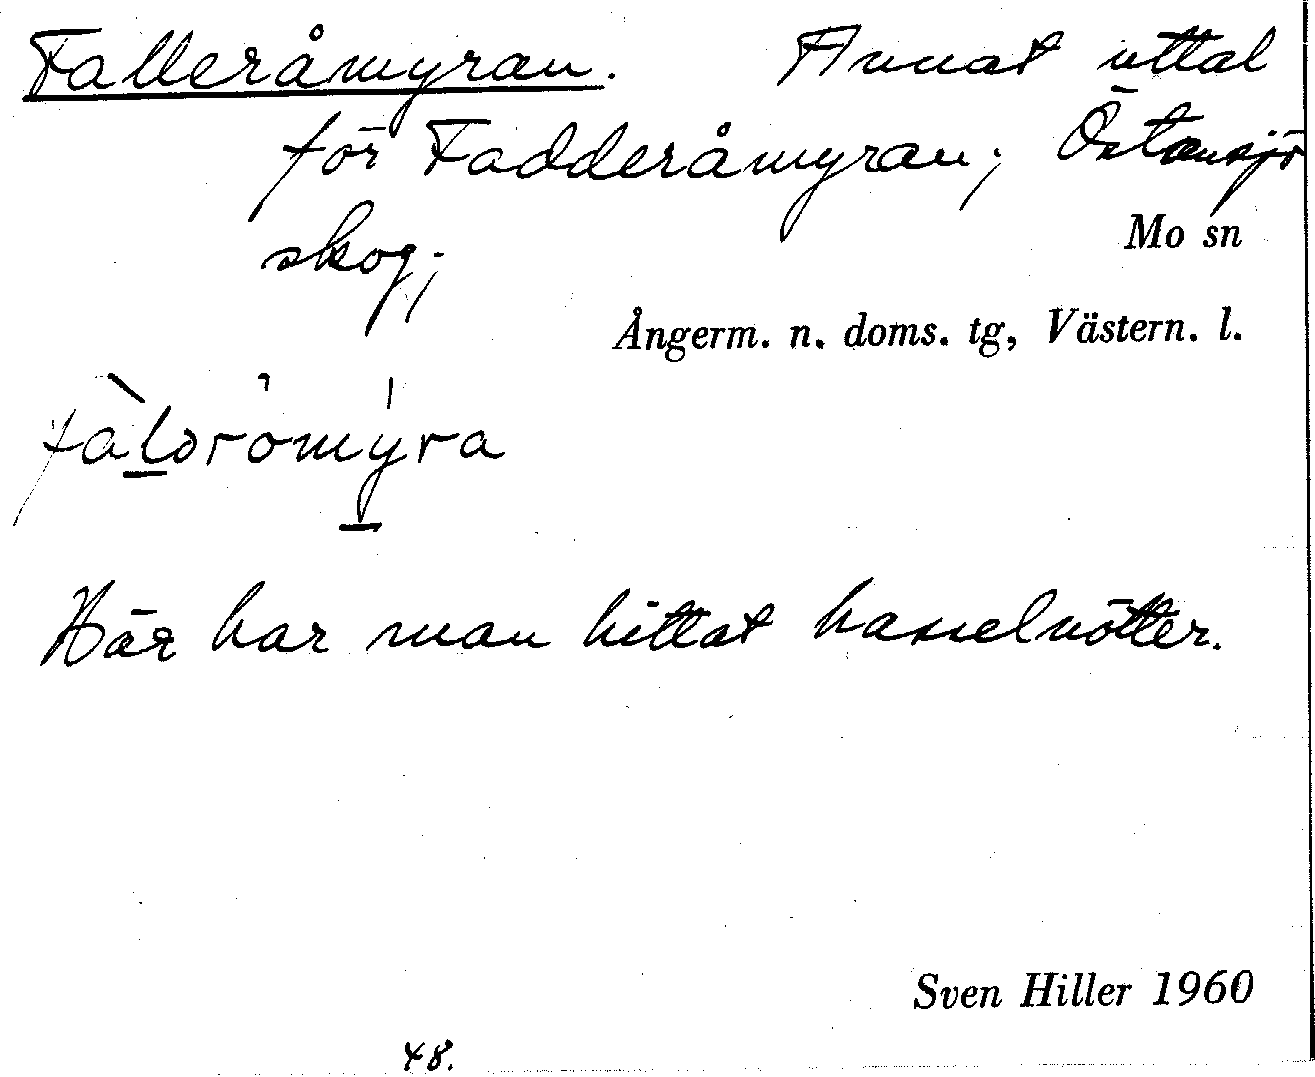 Falleråmyran. Annat uttal
för Fadderåmyran; Östansjö
skog;
Mo sn
Ångerm. n. doms. tg, Västern. l.
fàləròmýra
Här har man hittat hasselnötter.
Sven Hiller 1960
48.